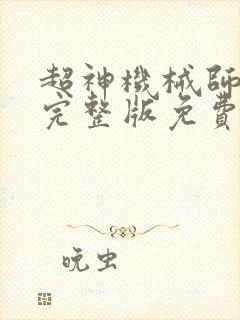 超神機械師
完整版免費
晚虫